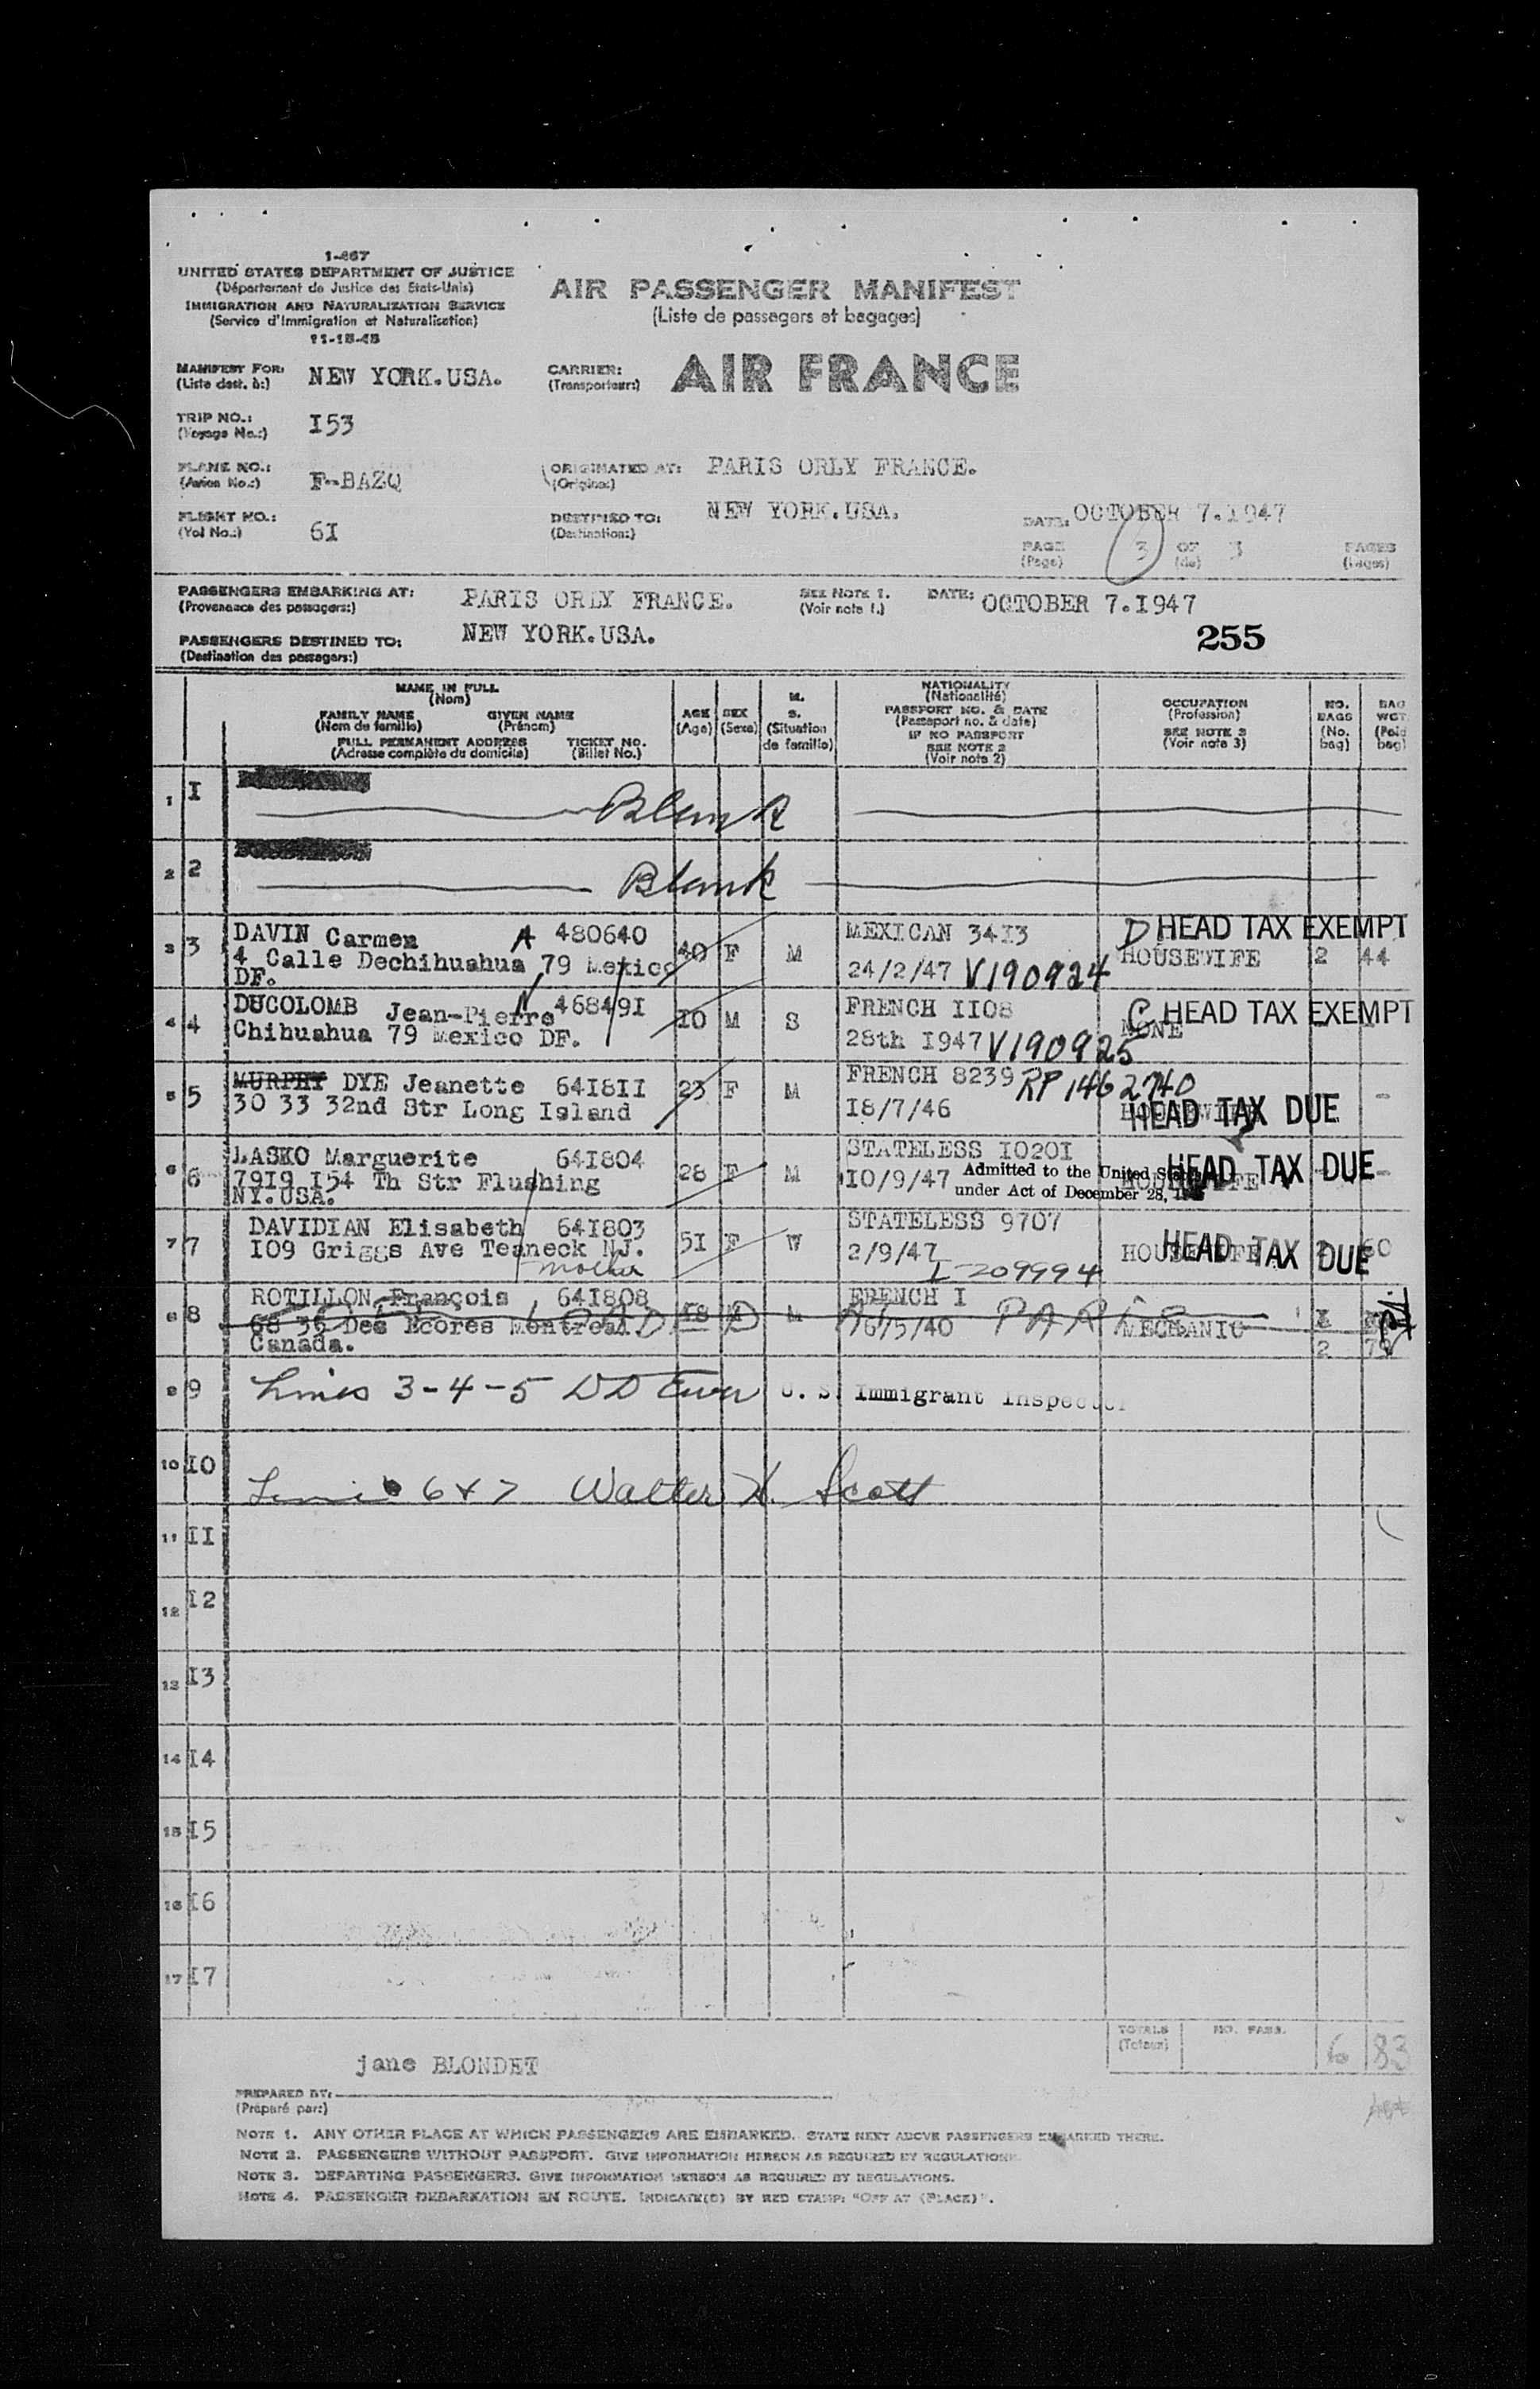 1-467
UNITED STATES DEPARTMENT OF JUSTICE
(Département de Justice des Etats-Unis)
IMMIGRATION AND NATURALIZATION SERVICE
(Service d'Immigration et Naturalisation)
11-15-45
AIR PASSENGER MANIFEST
(Liste de passagers et bagages)
MANIFEST FOR: NEW YORK.USA.
(Liste dest. à:)
CARRIER: AIR FRANCE
(Transporteur:)
TRIP NO.: I53
(Voyage No.:)
PLANE NO.: F-BAZQ
(Avion No.:)
ORIGINATED AT: PARIS ORLY FRANCE.
(Origine:)
FLIGHT NO.: 6I
(Vol No.:)
DESTINED TO: NEW YORK.USA.
(Destination:)
DATE: OCTOBER 7.I947
PAGE 3 OF 3 PAGES
(Page) (de) (Pages)
PASSENGERS EMBARKING AT: PARIS ORLY FRANCE.
(Provenance des passagers:)
SEE NOTE 1. DATE: OCTOBER 7.I947
(Voir note 1.)
PASSENGERS DESTINED TO: NEW YORK.USA.
(Destination des passagers:)
255
NAME IN FULL
(Nom)
FAMILY NAME GIVEN NAME
(Nom de famille) (Prénom)
FULL PERMANENT ADDRESS TICKET NO.
(Adresse complète du domicile) (Billet No.)
AGE
(Age)
SEX
(Sexe)
M.
S.
(Situation
de famille)
NATIONALITY
(Nationalité)
PASSPORT NO. & DATE
(Passeport no. & date)
IF NO PASSPORT
SEE NOTE 2
(Voir note 2)
OCCUPATION
(Profession)
SEE NOTE 3
(Voir note 3)
NO.
BAGS
(No.
bag)
BAG
WGT
(Poid
bag)
1 I Blank
2 2 Blank
3 3 DAVIN Carmen A 480640 40 F M MEXICAN 34I3 D HEAD TAX EXEMPT
4 Calle Dechihuahua 79 Mexico 24/2/47 V190924 HOUSEWIFE 2 44
DF.
4 4 DUCOLOMB Jean-Pierre 46849I I0 M S FRENCH II08 C HEAD TAX EXEMPT
Chihuahua 79 Mexico DF. 28th I947 V190925 NONE
5 5 MURPHY DYE Jeanette 64I8II 23 F M FRENCH 8239 RP 1462740
30 33 32nd Str Long Island I8/7/46 HEAD TAX DUE -
6 6 LASKO Marguerite 64I804 28 F M STATELESS I020I
79I9 I54 Th Str Flushing I0/9/47 Admitted to the United States HEAD TAX DUE -
NY.USA. under Act of December 28,
7 7 DAVIDIAN Elisabeth 64I803 5I F W STATELESS 9707
I09 Griggs Ave Teaneck NJ. 2/9/47 HOUSEWIFE HEAD TAX DUE
mother I-209994
8 8 ROTILLON François 64I808 M FRENCH I
68 36 Des Ecores Montreal /5/40 PARIS MECHANIC
Canada. 2
9 9 Lines 3-4-5 U. S. Immigrant Inspector
10 I0 Lines 6 & 7 Walter H. Scott
11 II
12 I2
13 I3
14 I4
15 I5
16 I6
17 I7
TOTALS NO. PASS. 6 83
(Totaux)
jane BLONDET
PREPARED BY:
(Préparé par:)
NOTE 1. ANY OTHER PLACE AT WHICH PASSENGERS ARE EMBARKED. STATE NEXT ABOVE PASSENGERS EMBARKED THERE.
NOTE 2. PASSENGERS WITHOUT PASSPORT. GIVE INFORMATION HEREON AS REQUIRED BY REGULATIONS.
NOTE 3. DEPARTING PASSENGERS. GIVE INFORMATION HEREON AS REQUIRED BY REGULATIONS.
NOTE 4. PASSENGER DEBARKATION EN ROUTE. INDICATE(D) BY RED STAMP: "OFF AT (PLACE)".